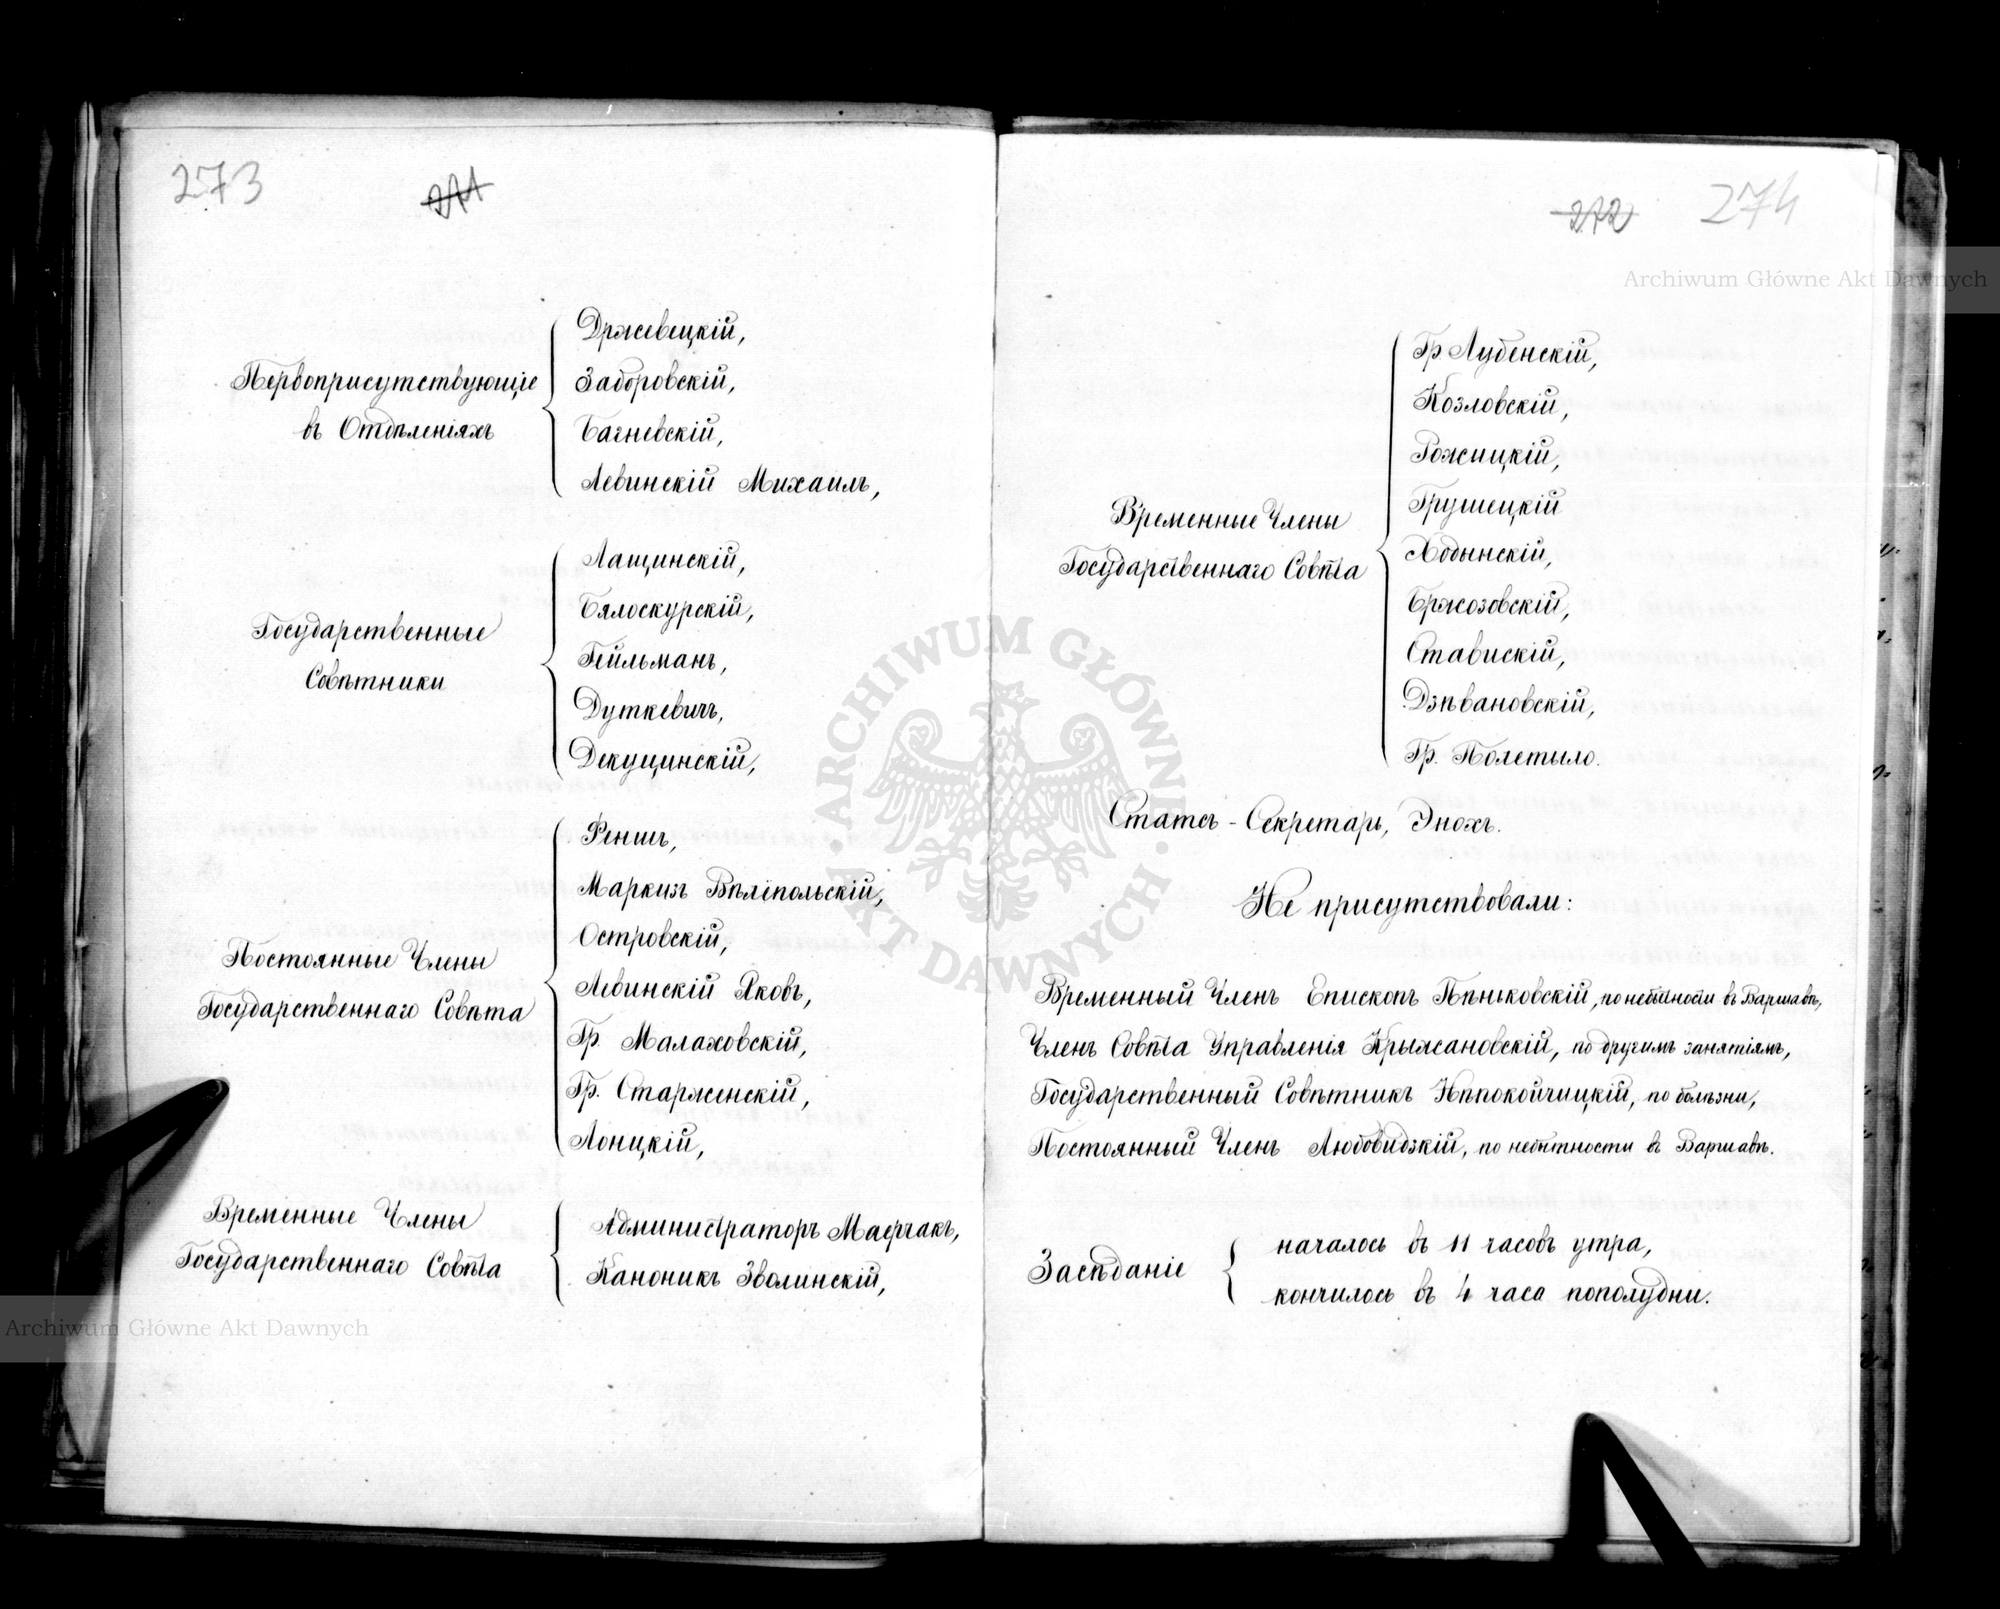 273
271
Држевецкій,
Первоприсутствующіе
Заборовскій,
въ Отдѣленіяхъ
Багневскій,
Левинскій Михаилъ,
Лащинскій,
Бялоскурскій,
Государственные
Гейльманъ,
Совѣтники
Дуткевичъ,
Декуцинскій,
Феншъ,
Маркизъ Вѣлёпольскій,
Островскій,
Постоянные Члены
Левинскій Яковъ,
Государственнаго Совѣта
Гр. Малаховскій,
Гр. Старженскій,
Лонцкій,
Временные Члены
Администраторъ Маерчакъ,
Государственнаго Совѣта
Каноникъ Зволинскій,
272
274
Гр Лубенскій,
Козловскій,
Рожицкій,
Грушецкій
Временные Члены
Ходынскій,
Государственнаго Совѣта
Бржозовскій,
Ставискій,
Дзѣвановскій,
Гр. Полетыло.
Статсъ-Секретарь, Энохъ.
Не присутствовали:
Временный Членъ Епископъ Пѣньковскій, по небытности въ Варшавѣ,
Членъ Совѣта Управленія Крыжановскій, по другимъ занятіямъ,
Государственный Совѣтникъ Нѣпокойчицкій, по болѣзни,
Постоянный Членъ Любовидзкій, по небытности въ Варшавѣ.
Засѣданіе
началось въ 11 часовъ утра,
кончилось въ 4 часа пополудни.
Archiwum Główne Akt Dawnych
Archiwum Główne Akt Dawnych
ARCHIWUM GŁÓWNE AKT DAWNYCH